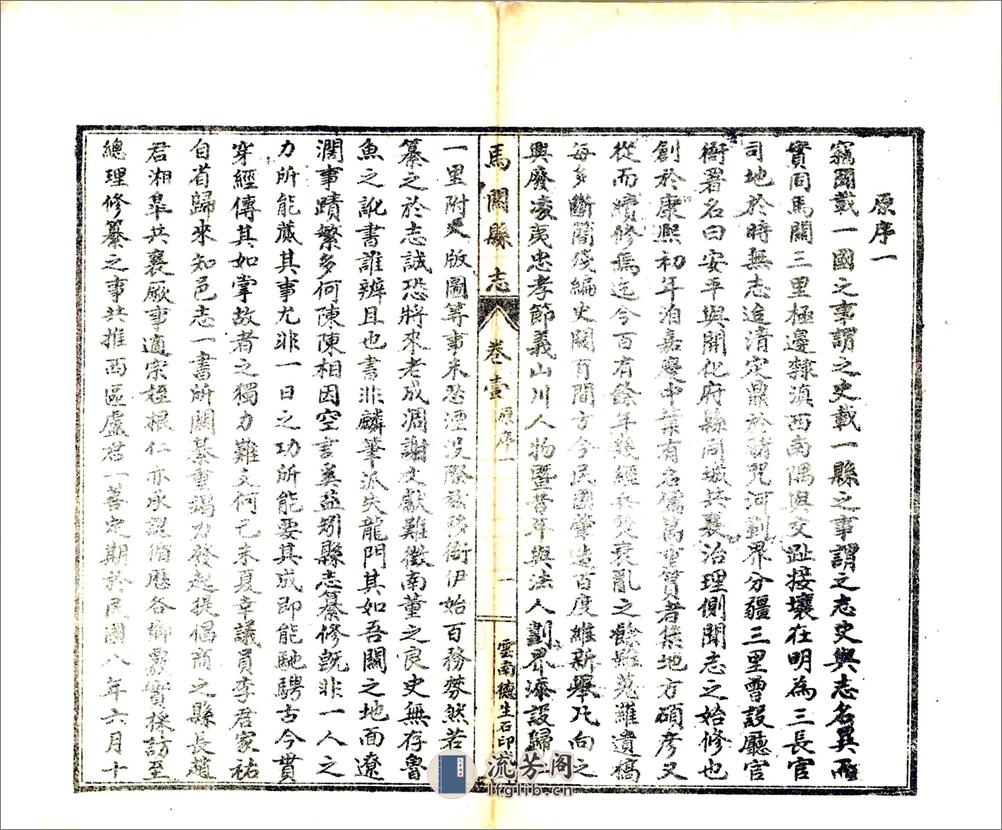 原序一
竊圖載一國之事謂之史載一縣之事謂之志史與志名異而
實同馬關三里極邊隸滇西南隅與交趾接壤在明為三長官
司地於時無志迨清定鼎於　咒河劃界分疆三里曾設廳官
衙署名曰安平與開化府縣同城共襄治理側聞志之始修也
創於康熙初年洎嘉慶中葉有名儒萬重賓者集地方碩彥又
從而續修焉迄今百有餘年幾經兵燹衰亂之餘雖蒐羅遺稿
每多斷簡殘編史闕有間方今民國肇造百度維新舉凡向之
興廢凌夷忠孝節義山川人物暨昔年與法人劃界添設歸
一里附入版圖等事未忍湮沒際茲　　伊始百務棼然若不
纂之於志誠恐將來老成凋謝文獻難徵南董之良史無存魯
魚之訛書誰辨且也書非麟筆派失龍門其如吾關之地面遼
濶事蹟繁多何陳陳相因空言奚益矧縣志纂修旣非一人之
力所能蕆其事尤非一日之功所能要其成即能馳騁古今貫
穿經傳其如掌故者之獨力難支何己未夏幸議員李君家祐
自省歸來知邑志一書所關綦重竭力發起提倡商之縣長趙
君湘皋共襄厥事適宗姪根仁亦承　　歷各鄉　實採訪至
總理修纂之事共推西區盧君一善定期於民國八年六月十
馬關縣志
卷壹
原序一
一
雲南德生石印
流芳阁
lfglib.cn